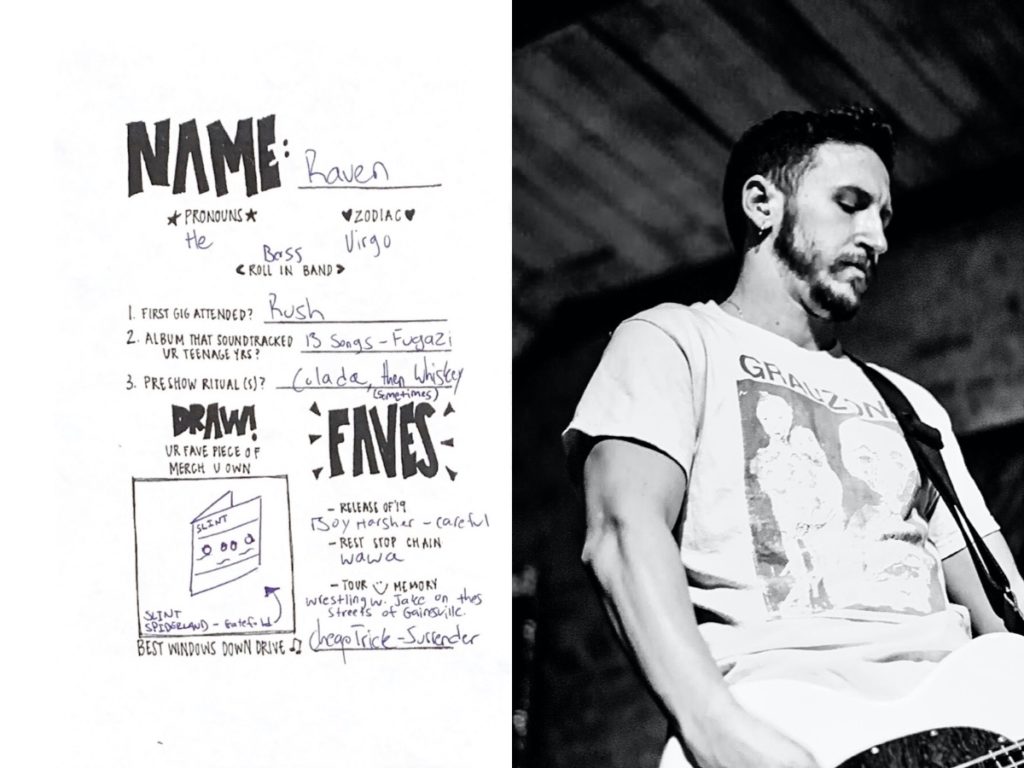 NAME: Raven
★PRONOUNS★ ♥ZODIAC♥
He Virgo
Bass
<ROLL IN BAND>
1. FIRST GIG ATTENDED? Rush
2. ALBUM THAT SOUNDTRACKED 13 Songs - Fugazi
UR TEENAGE YRS?
3. PRESHOW RITUAL(S)? Colada, then Whiskey
(sometimes)
DRAW!
UR FAVE PIECE OF
MERCH U OWN
SLINT
SLINT
SPIDERLAND - Gatefold
FAVES
- RELEASE OF '19
Boy Harsher - Careful
- REST STOP CHAIN
wawa
- TOUR MEMORY
wrestling w. Jake on the
streets of Gainsville.
BEST WINDOWS DOWN DRIVE ♫ CheapTrick - Surrender
GRAUZONE